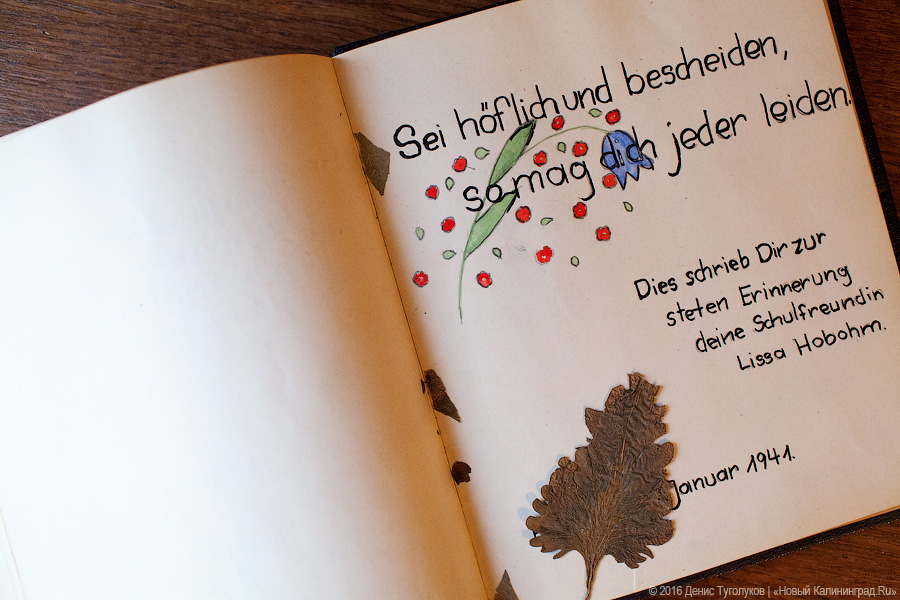 Sei höflich und bescheiden,
so mag dich jeder leiden.
Dies schrieb Dir zur
steten Erinnerung
deine Schulfreundin
Lissa Hobohm.
Januar 1941.
© 2016 Денис Туголуков | «Новый Калининград.Ru»